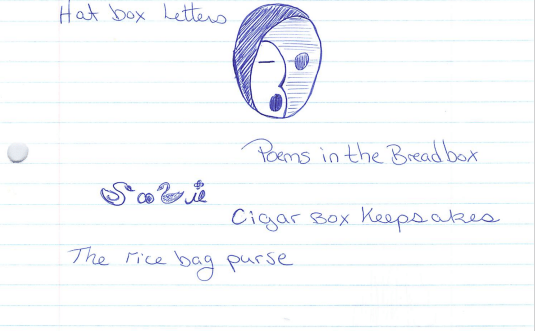 Hat box Letters
Poems in the Breadbox
Cigar Box Keepsakes
The rice bag purse